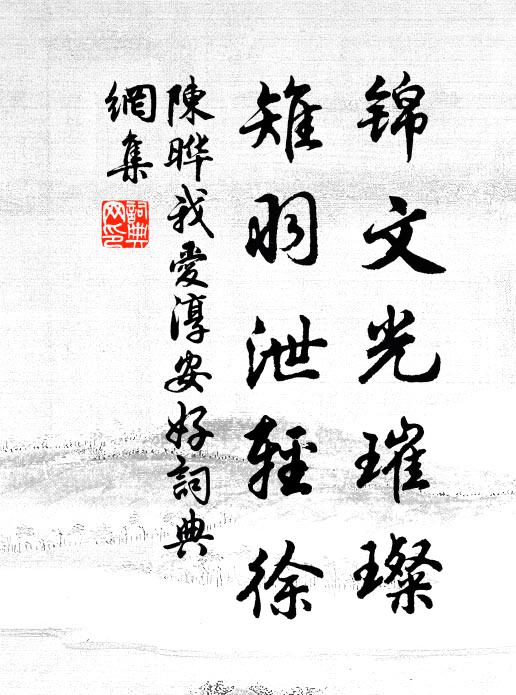 锦文光璀璨
雉羽泄轻徐
陳晔我愛淳安好詞典
網集
詞典
网印